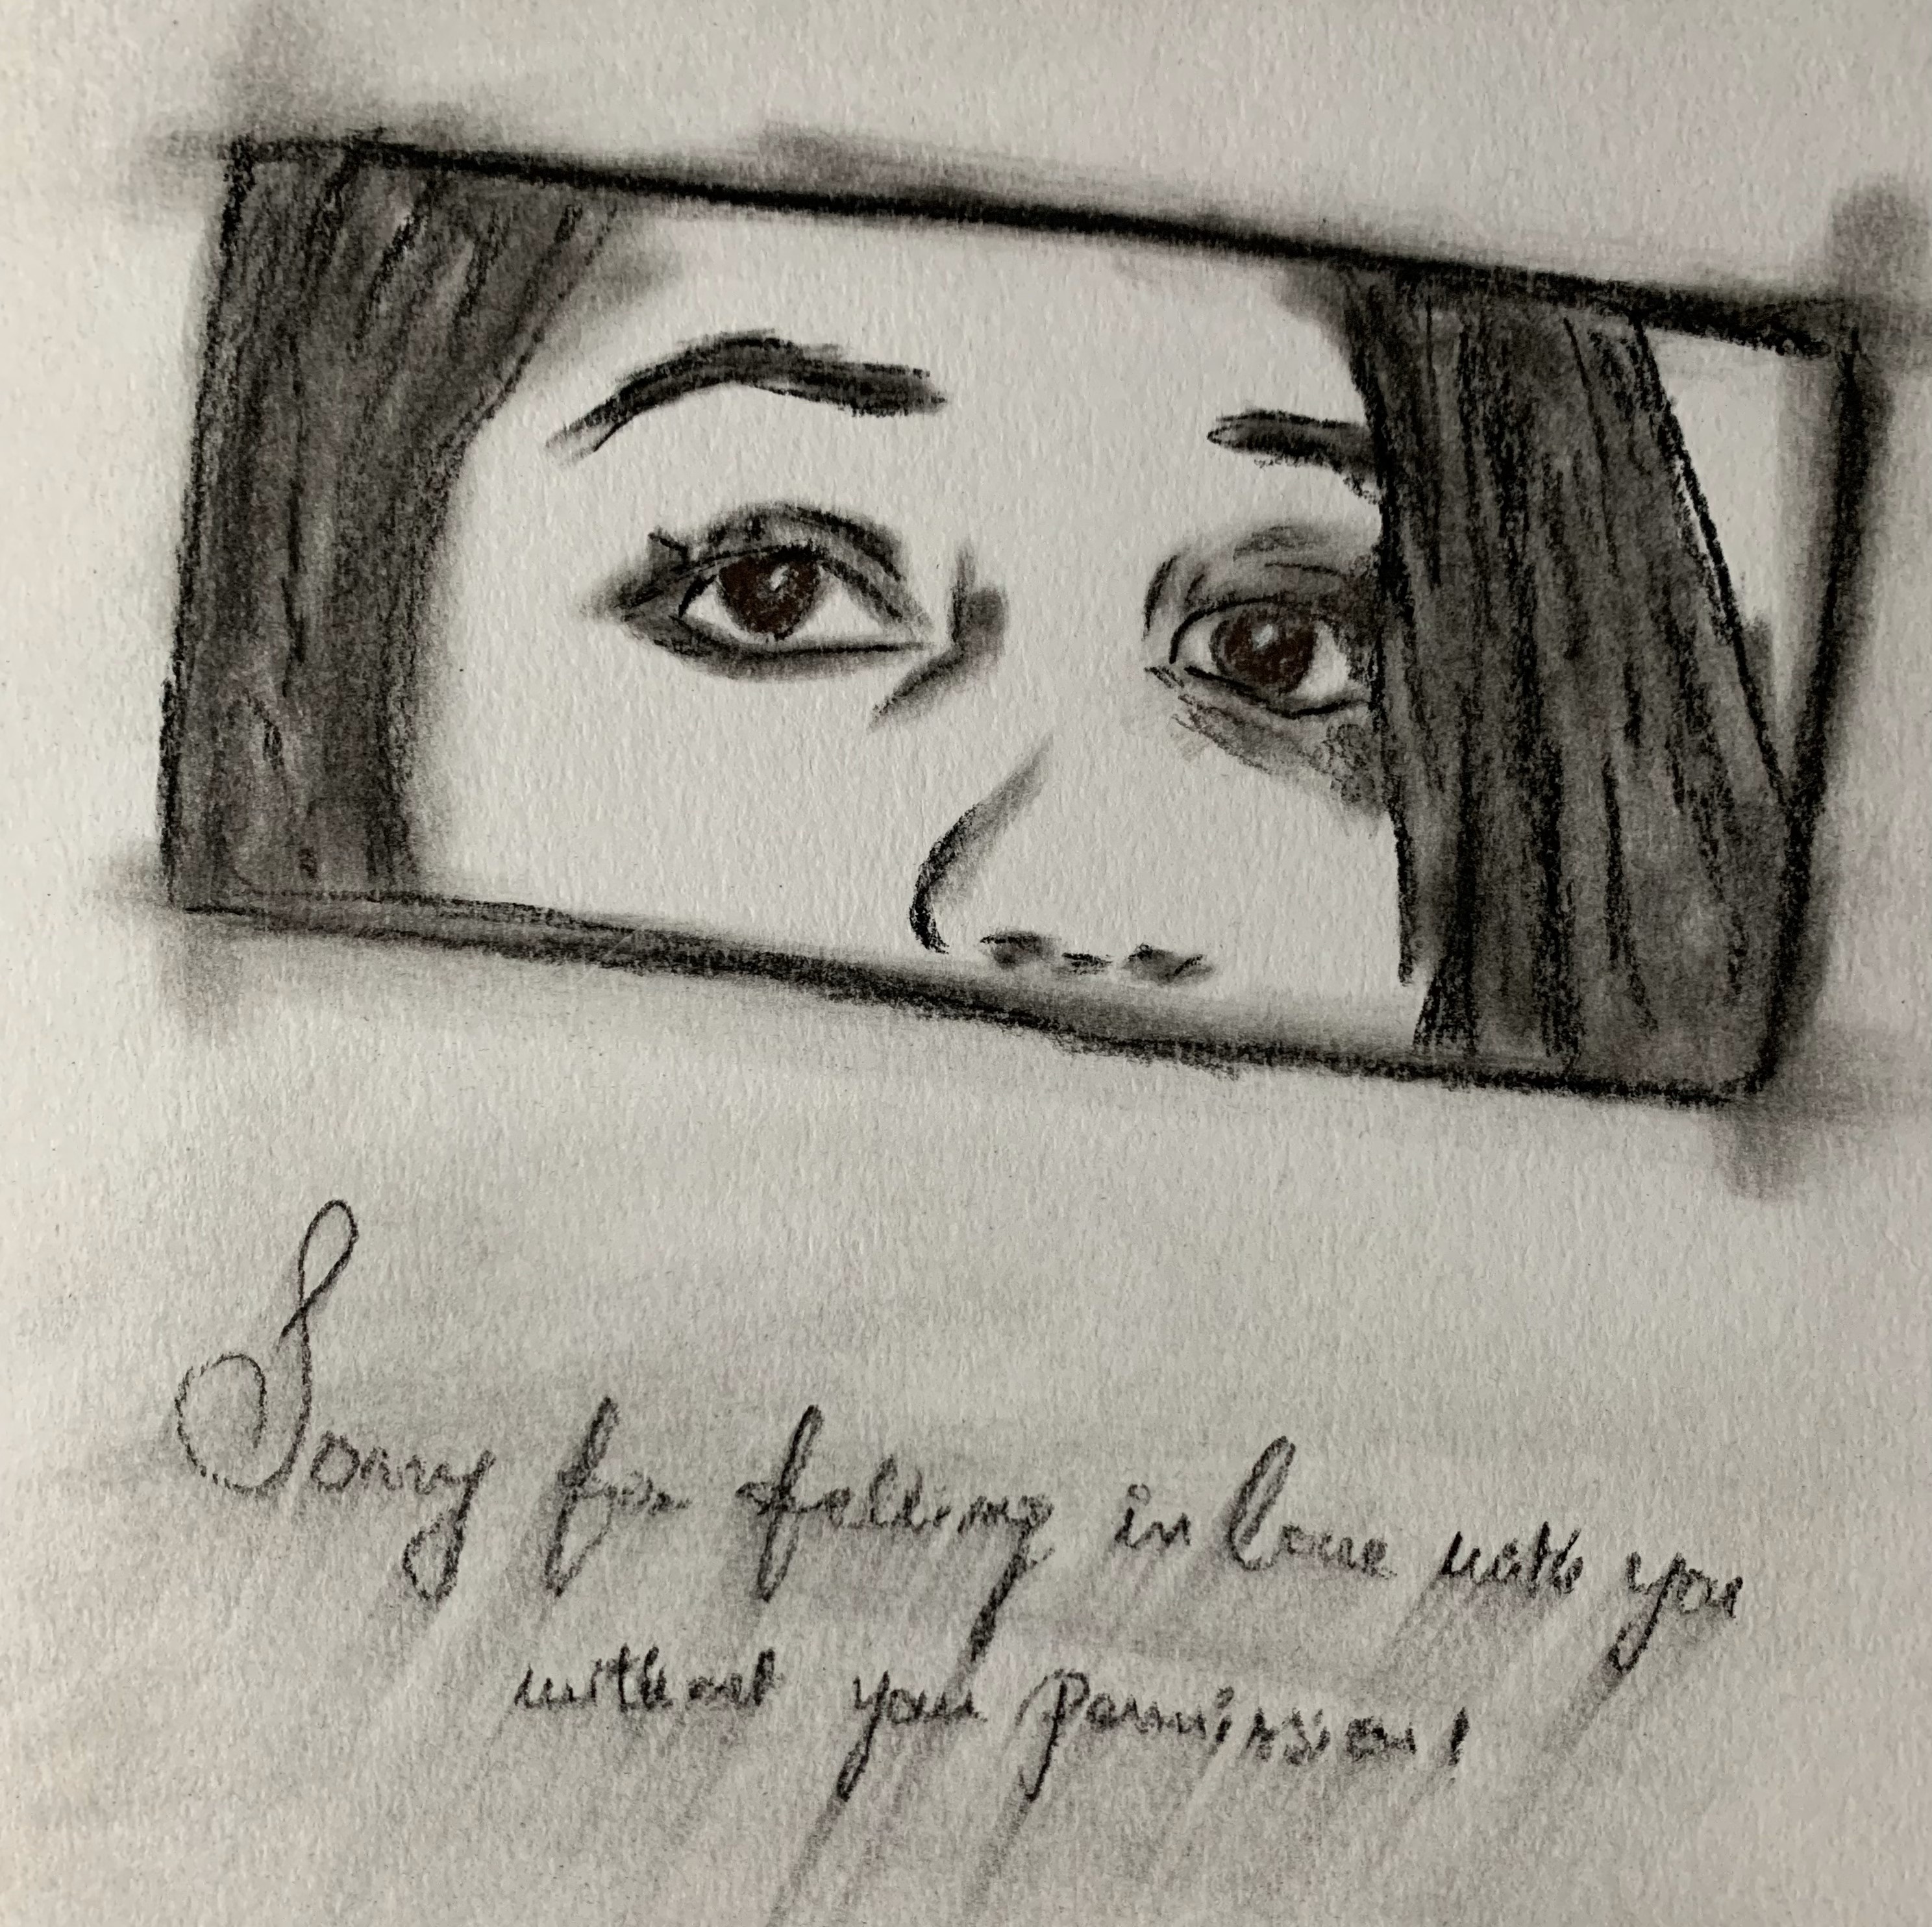 Sorry for falling in love with you
without your permission!